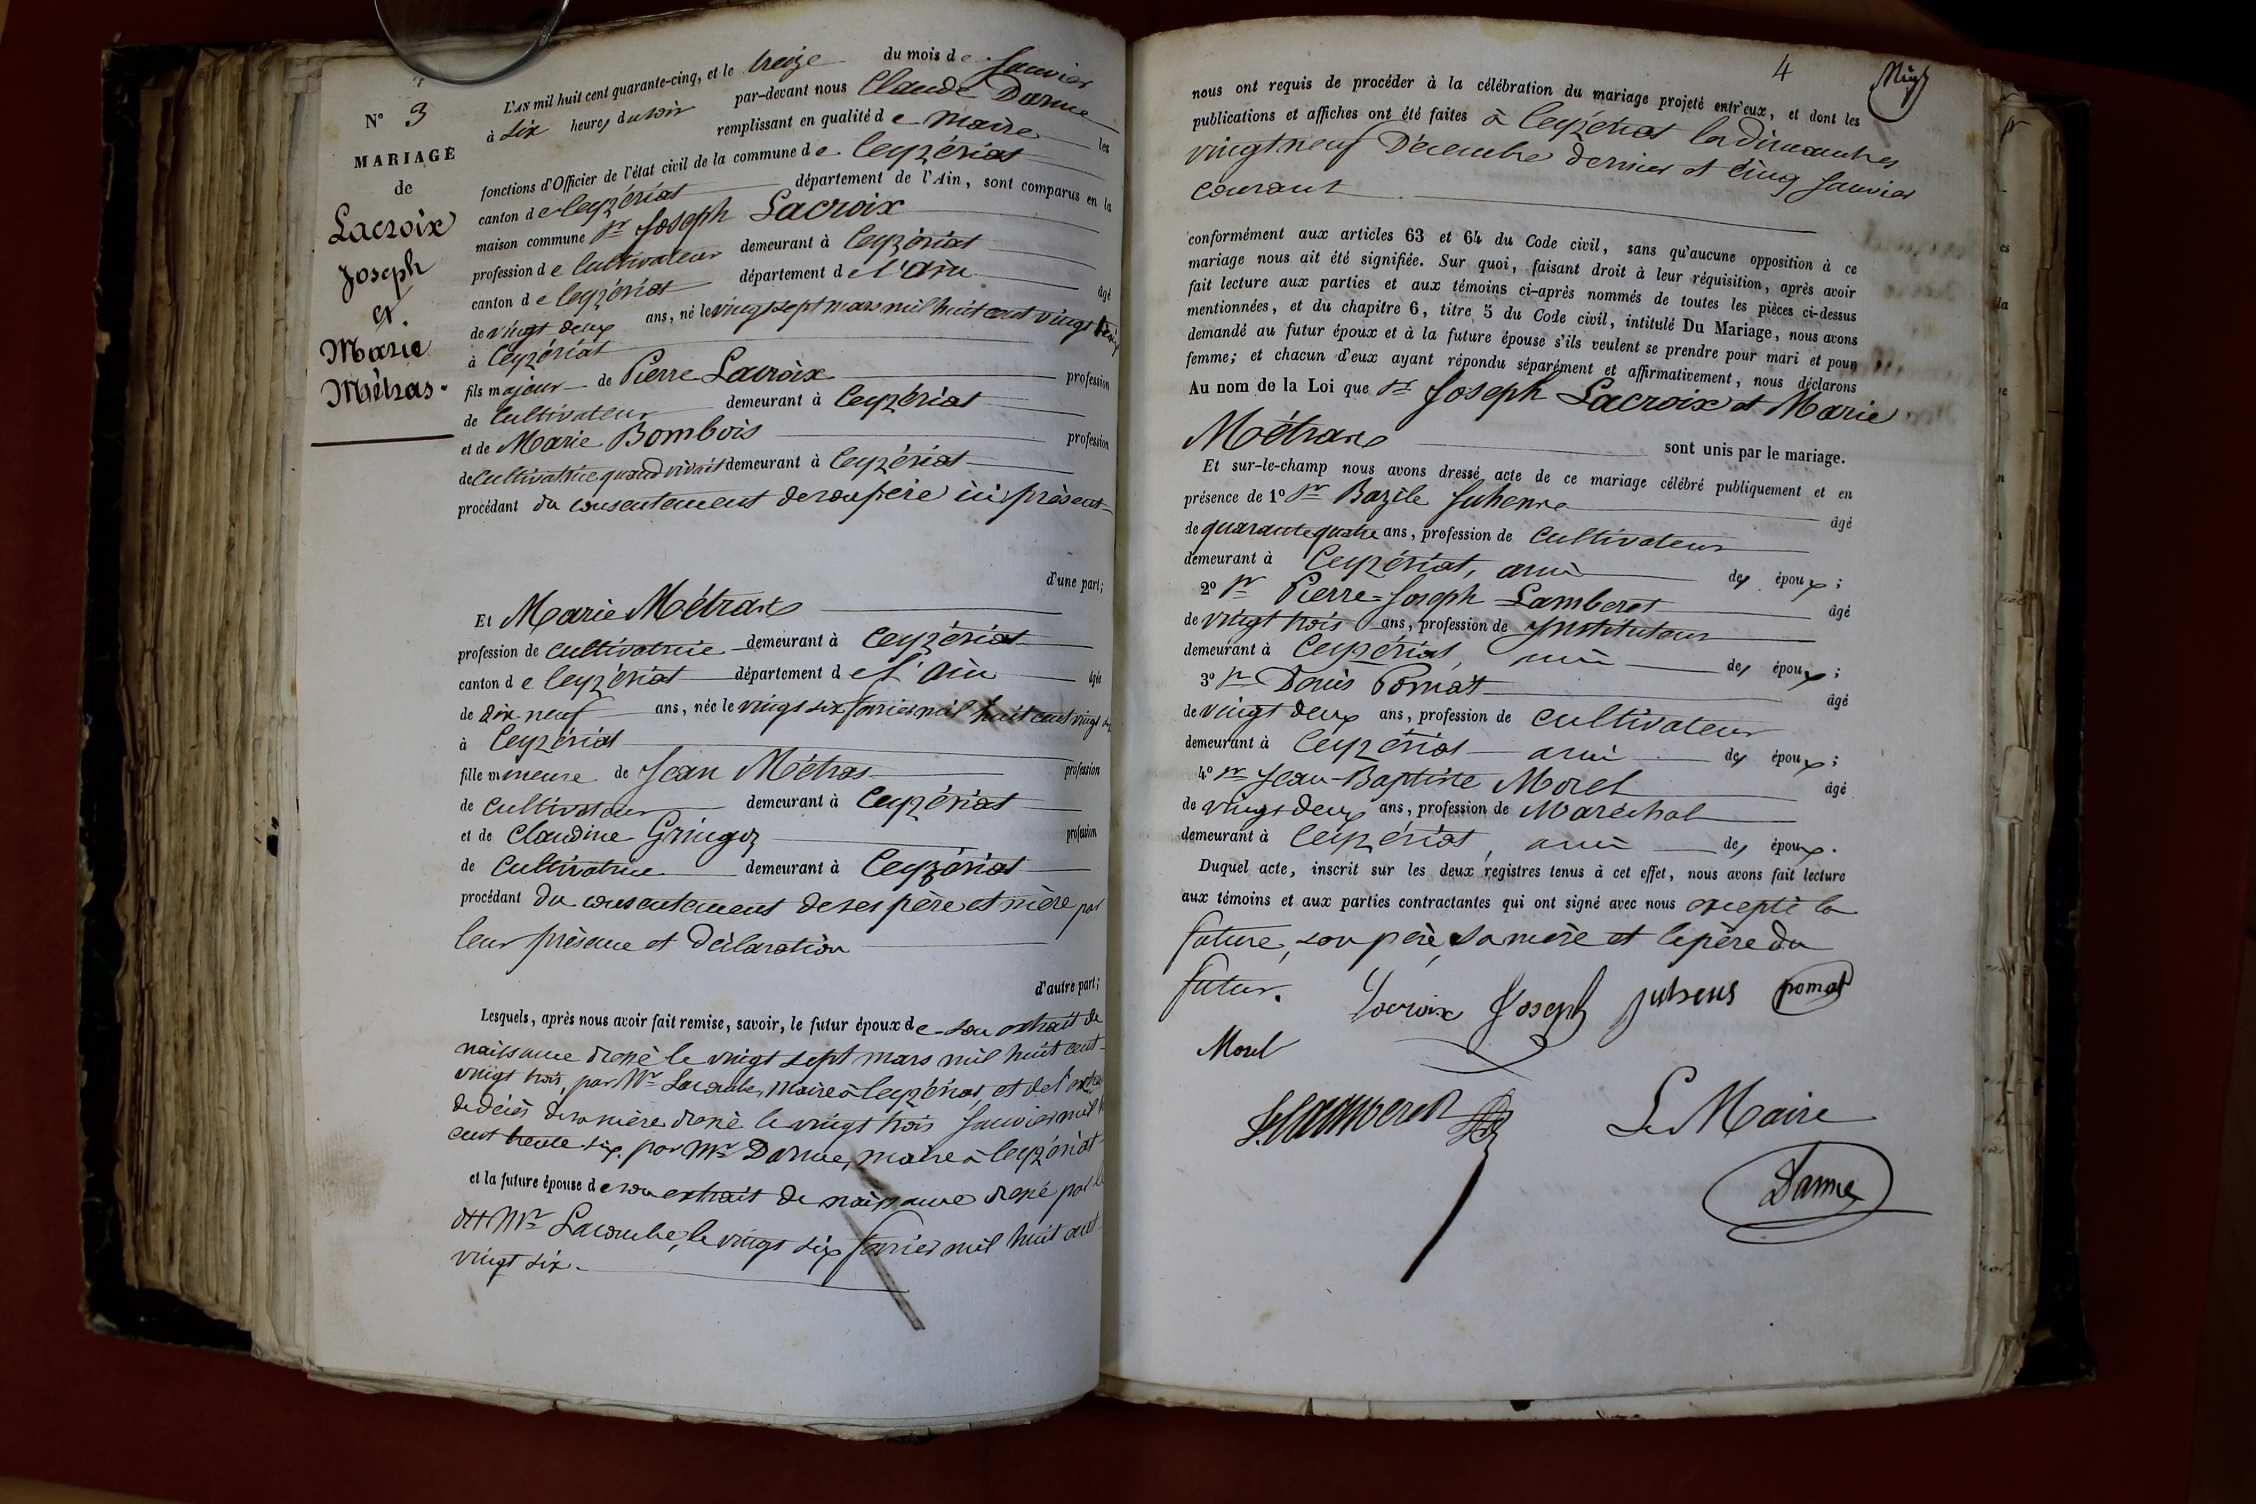 N° 3
MARIAGE
de
Lacroix
Joseph
et
Marie
Métras.
L'AN mil huit cent quarante-cinq, et le treize du mois de Janvier
à six heures du soir par-devant nous Claude Darme
remplissant en qualité de Maire les
fonctions d'Officier de l'état civil de la commune de Ceyzériat
canton de Ceyzériat département de l'Ain, sont comparus en la
maison commune Sr Joseph Lacroix
profession de Cultivateur demeurant à Ceyzériat
canton de Ceyzériat département de l'Ain âgé
de vingt deux ans, né le vingt sept mars mil huit cent vingt trois
à Ceyzériat
fils majeur de Pierre Lacroix profession
de Cultivateur demeurant à Ceyzériat
et de Marie Bombois profession
de Cultivatrice quand vivait demeurant à Ceyzériat
procédant du consentement de son père ici présent
d'une part;
Et Marie Métras
profession de Cultivatrice demeurant à Ceyzériat
canton de Ceyzériat département de l'Ain âgée
de dix neuf ans, née le vingt six février mil huit cent vingt six
à Ceyzériat
fille mineure de Jean Métras profession
de Cultivateur demeurant à Ceyzériat
et de Claudine Gringoz profession
de Cultivatrice demeurant à Ceyzériat
procédant du consentement de ses père et mère par
leur présence et déclaration
d'autre part;
Lesquels, après nous avoir fait remise, savoir, le futur époux de son extrait de
naissance dressé le vingt sept mars mil huit cent
vingt trois, par Mr Lacombe, Maire à Ceyzériat, et de l'extrait
de décès de sa mère dressé le vingt trois Janvier mil
cent trente six, par Mr Darme, maire à Ceyzériat
et la future épouse de son extrait de naissance dressé par le
dit Mr Lacombe, le vingt six février mil huit cent
vingt six.
4
nous ont requis de procéder à la célébration du mariage projeté entr'eux, et dont les
publications et affiches ont été faites à Ceyzériat les dimanches
vingt neuf Décembre dernier et cinq Janvier
courant
conformément aux articles 63 et 64 du Code civil, sans qu'aucune opposition à ce
mariage nous ait été signifiée. Sur quoi, faisant droit à leur réquisition, après avoir
fait lecture aux parties et aux témoins ci-après nommés de toutes les pièces ci-dessus
mentionnées, et du chapitre 6, titre 5 du Code civil, intitulé Du Mariage, nous avons
demandé au futur époux et à la future épouse s'ils veulent se prendre pour mari et pour
femme; et chacun d'eux ayant répondu séparément et affirmativement, nous déclarons
Au nom de la Loi que Sr Joseph Lacroix et Marie
Métras sont unis par le mariage.
Et sur-le-champ nous avons dressé acte de ce mariage célébré publiquement et en
présence de 1° Sr Bazile Juhenne âgé
de quarante quatre ans, profession de Cultivateur
demeurant à Ceyzériat, ami des époux;
2° Sr Pierre-Joseph Lamberet âgé
de vingt trois ans, profession de Instituteur
demeurant à Ceyzériat, ami des époux;
3° Sr Denis Pomat âgé
de vingt deux ans, profession de Cultivateur
demeurant à Ceyzériat ami des époux;
4° Sr Jean-Baptiste Morel âgé
de vingt deux ans, profession de Maréchal
demeurant à Ceyzériat, ami des époux.
Duquel acte, inscrit sur les deux registres tenus à cet effet, nous avons fait lecture
aux témoins et aux parties contractantes qui ont signé avec nous excepté la
future, son père, sa mère et le père du
futur.
Lacroix Joseph pomat
Morel
Lamberet
Le Maire
Darme